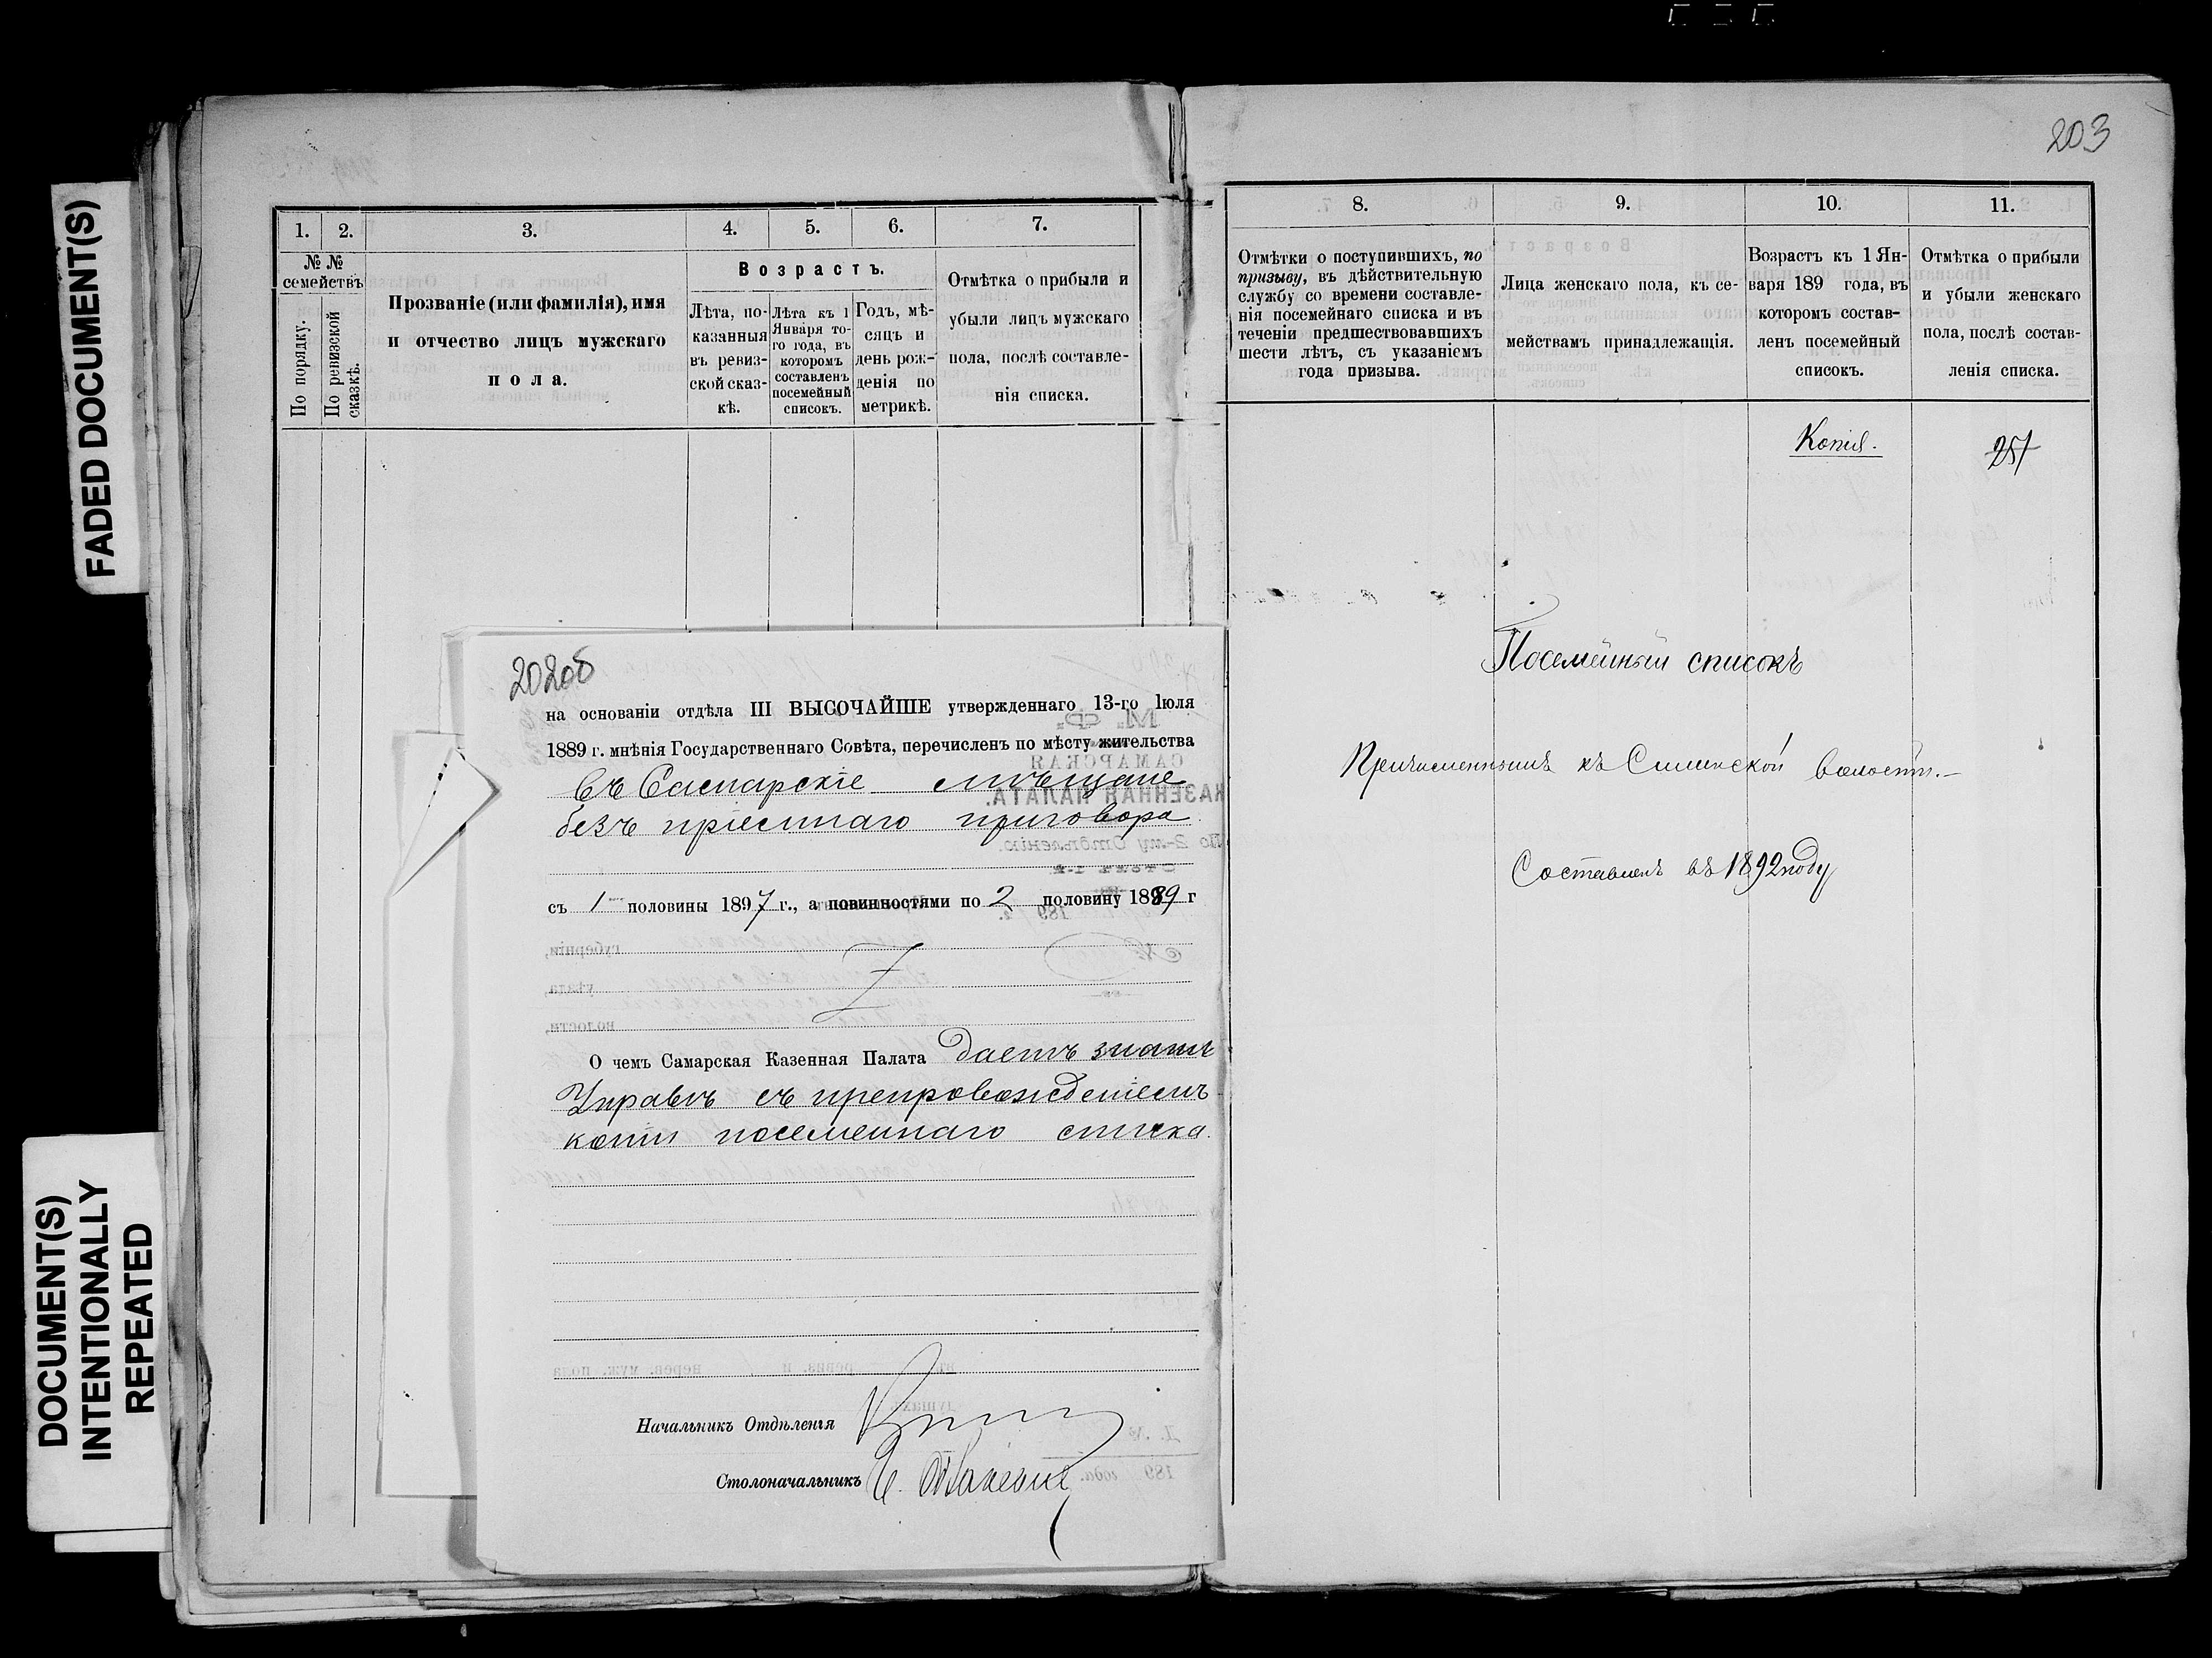 FADED DOCUMENT(S)
DOCUMENT(S)
INTENTIONALLY
REPEATED
1.
2.
3.
4.
5.
6.
7.
№ №
семействъ
По порядку.
По ревизской
сказкѣ.
Прозваніе (или фамилія), имя
и отчество лицъ мужскаго
пола.
Возрастъ.
Лѣта, по-
казанныя
въ ревиз-
ской сказ-
кѣ.
Лѣта къ 1
Января то-
го года, въ
которомъ
составленъ
посемейный
списокъ.
Годъ, мѣ-
сяцъ и
день рож-
денія по
метрикѣ.
Отмѣтка о прибыли и
убыли лицъ мужскаго
пола, послѣ составле-
нія списка.
202об
на основаніи отдѣла III ВЫСОЧАЙШЕ утвержденнаго 13-го Іюля
1889 г. мнѣнія Государственнаго Совѣта, перечисленъ по мѣсту жительства
въ Самарскіе мѣщане
безъ пріемнаго приговора
съ 1 половины 1897 г., а повинностями по 2 половину 1889 г
О чемъ Самарская Казенная Палата даетъ знать
Управѣ съ препровожденіемъ
копіи посемейнаго списка.
Начальникъ Отдѣленія
Столоначальникъ
203
8.
9.
10.
11.
Отмѣтки о поступившихъ, по
призыву, въ дѣйствительную
службу со времени составле-
нія посемейнаго списка и въ
теченіи предшествовавшихъ
шести лѣтъ, съ указаніемъ
года призыва.
Лица женскаго пола, къ се-
мействамъ принадлежащія.
Возрастъ къ 1 Ян-
варя 189 года, въ
которомъ состав-
ленъ посемейный
списокъ.
Отмѣтка о прибыли
и убыли женскаго
пола, послѣ состав-
ленія списка.
Копія.
Посемейный списокъ
къ волости.
Составленъ въ 1892 году